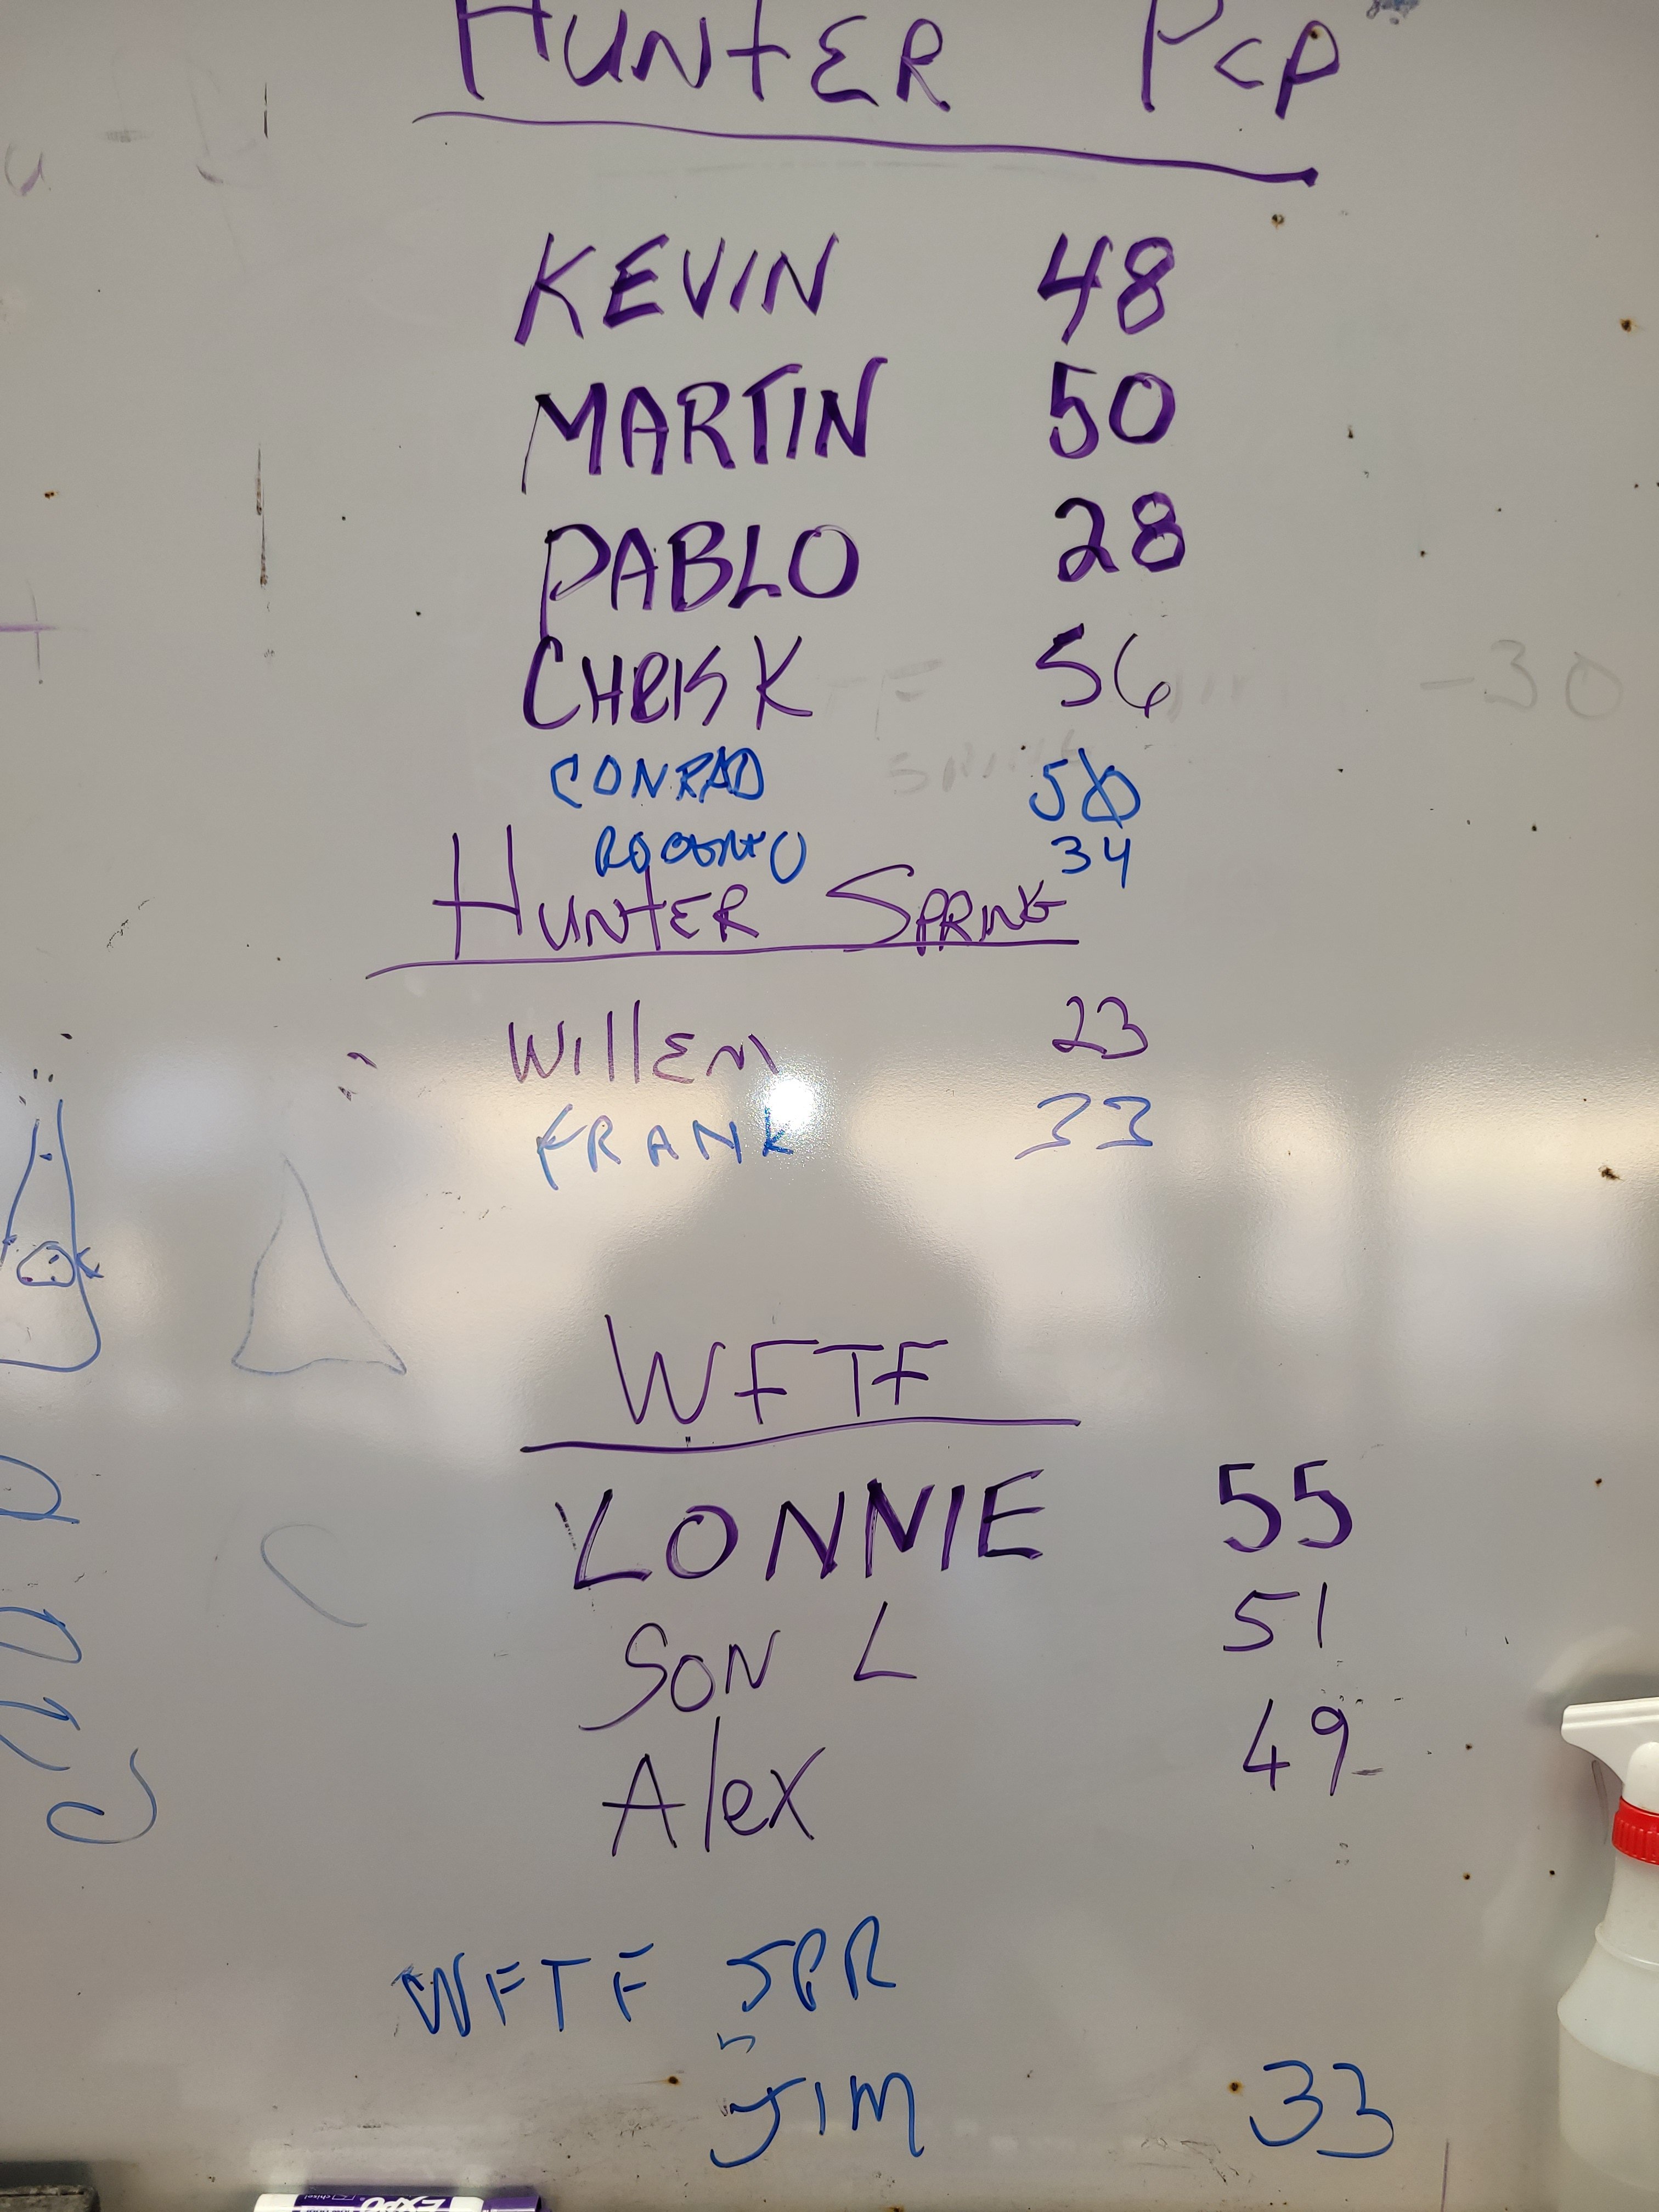 HUNTER PCP
KEVIN 48
MARTIN 50
PABLO 28
CHRIS K 56
CONRAD 50
34
HUNTER SPRING
WillEm 23
FRANK 33
WFTF
LONNIE 55
SON L 51
Alex 49
WFTF SPR
JIM 33
-30
EXPO